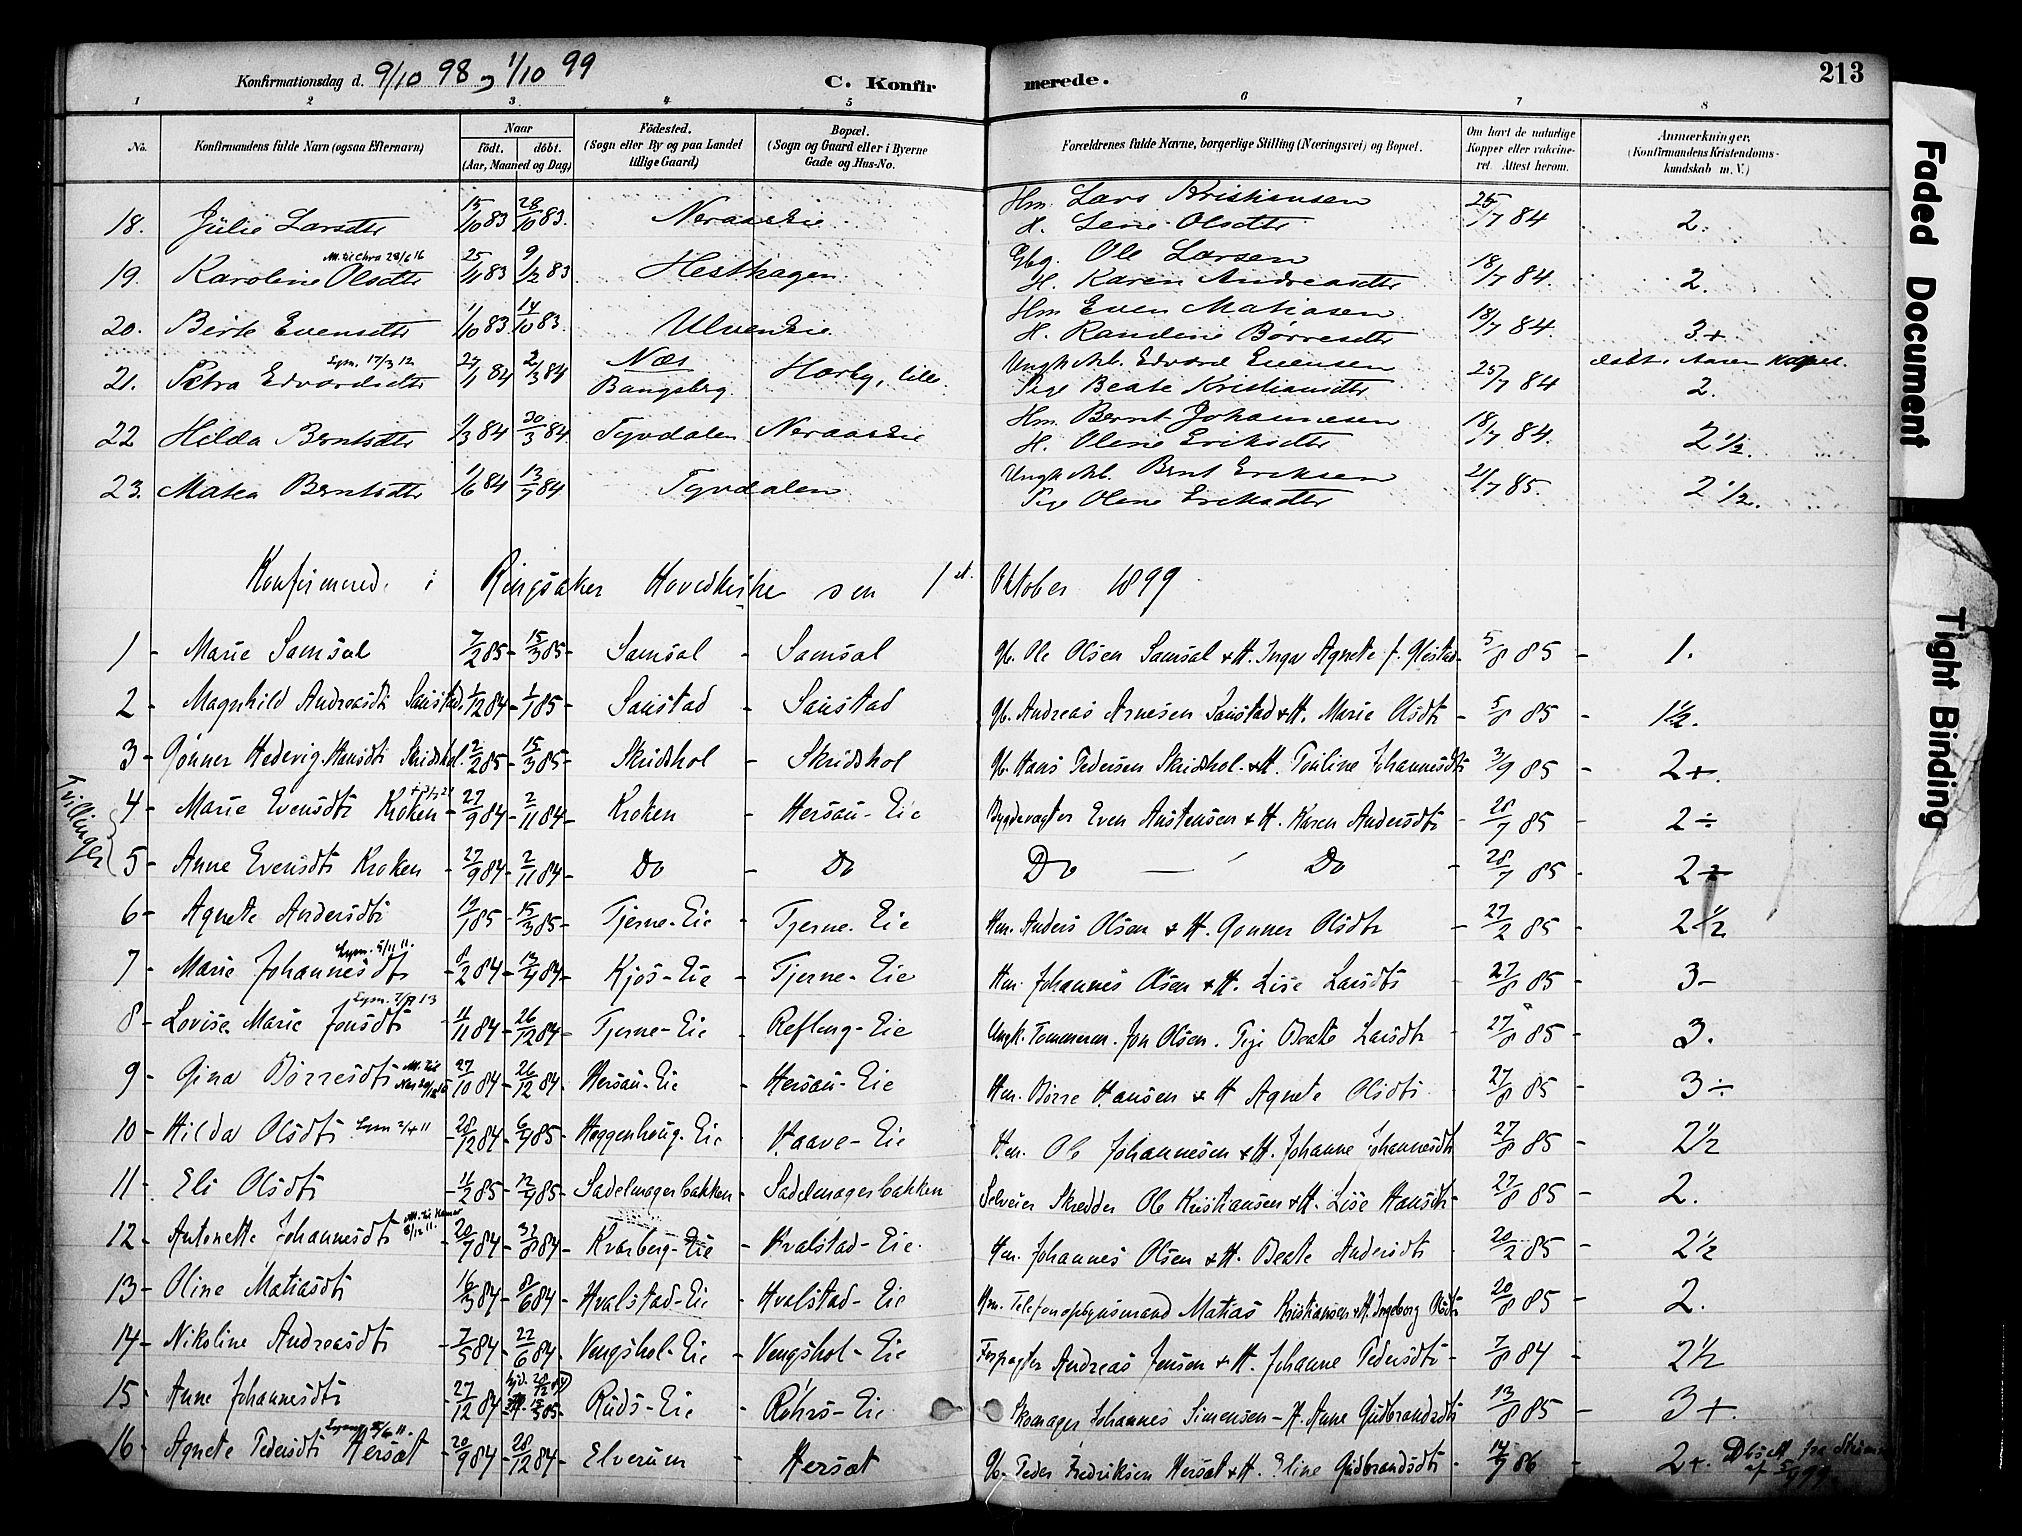 Konfirmationsdag d. 9/10 98 og 1/10 99 C. Konfirmerede. 213
1 2 3 4 5 6 7 8
No. Konfirmandens fulde Navn (ogsaa Efternavn) Naar Födt. döbt. (Aar, Maaned og Dag) Födested. (Sogn eller By og paa Landet tillige Gaard) Bopæl. (Sogn og Gaard eller i Byerne Gade og Hus-No. Forældrenes fulde Navne, borgerlige Stilling (Næringsvei) og Bopæl. Om havt de naturlige Kopper eller vakcineret. Attest herom. Anmærkninger, (Konfirmandens Kristendomskundskab m. V.)
18. Julie Larsdtr 15/10 83 28/10 83. Neraaseie Hm. Lars Kristiansen H. Lene Olsdtr 25/7 84 2.
19. Karoline Olsdtr M. til Chra 28/6 16 25/11 83 9/12 83 Hesthagen Gbg. Ole Larsen H. Karen Andreasdtr 18/7 84. 2.
20. Berte Evensdtr 1/10 83 14/10 83. Ulvenseie Hm Even Matiasen H. Randine Børresdtr 18/7 84. 3+
21. Petra Edvardsdtr Lysn. 17/3 12 27/1 84 2/3 84 Næs Bangsberg Horby, lille Ungk. Arb. Edvard Evensen Pige Beate Kristiansdtr 25/7 84 2.
22 Hilda Berntsdtr 1/3 84 30/3 84 Tyvdalen Neraaseie Hm. Bernt Johannesen H. Oline Eriksdtr 18/7 84. 2 1/2.
23. Matea Berntsdtr 1/6 84 13/7 84 Tyvdalen Ungk. Arb. Brnt Eriksen Pige Oline Eriksdtr 21/7 85. 2 1/2.
Konfirmered i Ringsaker Hovedkirke den 1st Oktober 1899
1 - Marie Samsal 7/2 85 - 15/3 85 - Samsal - Samsal Gb. Ole Olsen Samsal & H. Inga Agnete f. Gjestad - 5/8 85 - 1.
2 - Magnhild Andreasdtr Saustad 1/12 84 - 1/1 85 - Saustad - Saustad Gb. Andreas Arnesen Saustad & H. Marie Olsdtr - 5/8 85 - 1½.
3 - Gønner Hedevig Hansdtr Skridshol 2/2 85 - 15/3 85 - Skridshol - Skridshol Gb. Hans Pedersen Skridshol & H. Pauline Johannesdtr 3/9 85 - 2+.
Tvillinger
4 - Marie Evensdtr Kroken - 27/9 84 - 2/11 84 - Kroken - Hersau-Eie Bygdevægter Even Austensen & H. Karen Andersdtr - 28/7 85 - 2÷
5 - Anne Evensdtr Kroken - 27/9 84 - 2/11 84 - Do - Do Do — Do - 28/7 85 - 2÷
6 - Agnete Andersdtr 19/1 85 - 15/3 85 - Tjerne-Eie - Tjerne-Eie Hm. Anders Olsen & H. Gønner Olsdtr - 27/2 85 - 2½
7 - Marie Johannesdtr Lysn. 5/11 11. - 8/2 84 - 13/4 84 - Kjos-Eie - Tjerne-Eie Hm. Johannes Olsen & H. Lise Larsdtr 27/8 85 - 3-
8 - Lovise Marie Jonsdtr - 11/11 84 - 26/12 84 - Tjerne-Eie - Refling-Eie Ungk. Tømmerm. Jon Olsen. Pige Beate Larsdtr - 27/8 85 - 3.
9 - Gina Børresdtr 27/10 84 - 26/12 84 - Hersau-Eie - Hersau-Eie Hm. Børre Hansen & H Agnete Olsdtr 27/8 85 - 3÷
10 - Hilda Olsdtr Lysn 2/4 11 - 28/12 84 - 6/4 85 - Heggenhaug-Eie - Haave-Eie Hm. Ole Johannesen & H. Johanne Johannesdtr 27/8 85 - 2½
11 - Eli Olsdtr - 11/2 85 - 12/4 85 - Sadelmagerbakken - Sadelmagerbakken Selveier Skredder Ole Kristiansen & H. Lise Hansdtr - 27/8 85 - 2.
12 - Antonette Johannesdtr M. til Hamar 8/12 11. - 20/7 84 - 31/8 84 - Kvarberg-Eie - Hvalstad-Eie Hm. Johannes Olsen & H. Beate Andersdtr 20/2 85 - 2½
13 - Oline Matiasdtr 16/3 84 - 8/6 84 - Hvalstad-Eie - Hvalstad-Eie Hm. Telefonopsynsmand Matias Kristiansen & H. Ingeborg Olsdtr 20/8 85 - 2.
14 - Nikoline Andreasdtr - 7/5 84 - 22/6 84 - Vengshol-Eie - Vengshol-Eie Forpagter Andreas Jensen & H. Johanne Pedersdtr - 7/8 84 - 2½
15 - Anne Johannesdtr - 27/12 84 Ruds-Eie - Røhrs-Eie Skomager Johannes Simensen - H. Anne Gudbrandsdtr 13/8 85 - 3+.
16 - Agnete Pedersdtr Hersæt - 20/9 84 - 28/12 84 - Elverum - Hersæt Gb. Peder Fredriksen Hersæt & H. Eline Gudbrandsdtr - 14/7 86 - 2+.
Faded Document
Tight Binding